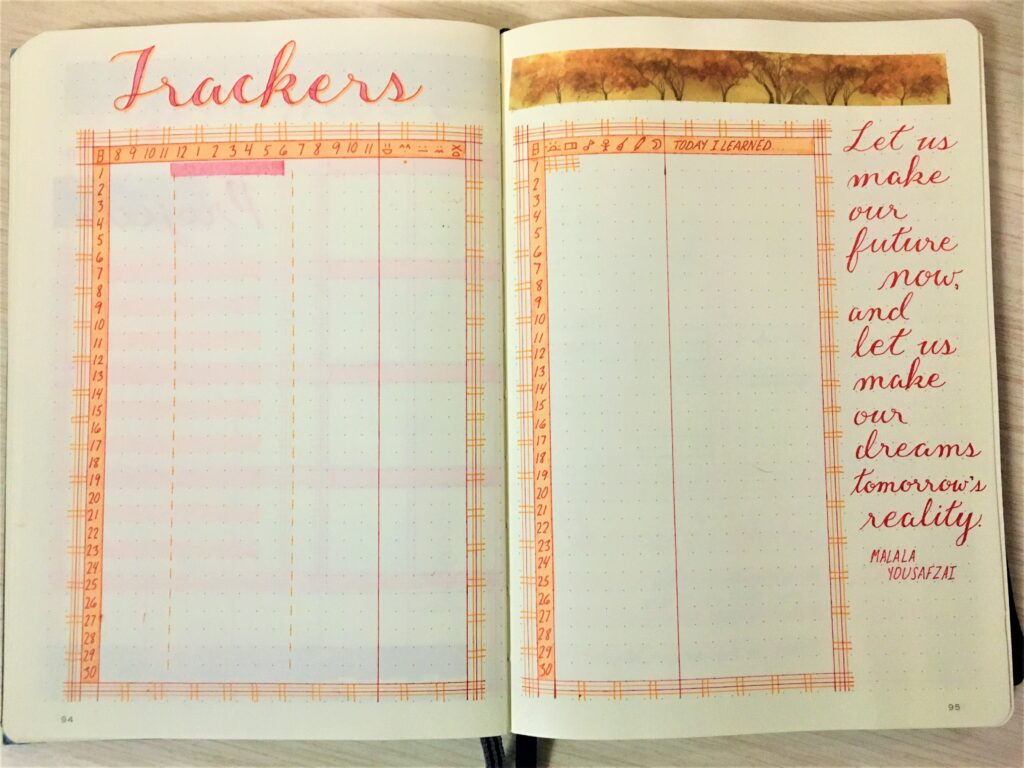 Trackers
8 9 10 11 12 1 2 3 4 5 6 7 8 9 10 11
1
2
3
4
5
6
7
8
9
10
11
12
13
14
15
16
17
18
19
20
21
22
23
24
25
26
27
28
29
30
94
TODAY I LEARNED...
1
2
3
4
5
6
7
8
9
10
11
12
13
14
15
16
17
18
19
20
21
22
23
24
25
26
27
28
29
30
Let us
make
our
future
now,
and
let us
make
our
dreams
tomorrow's
reality.
MALALA
YOUSAFZAI
95